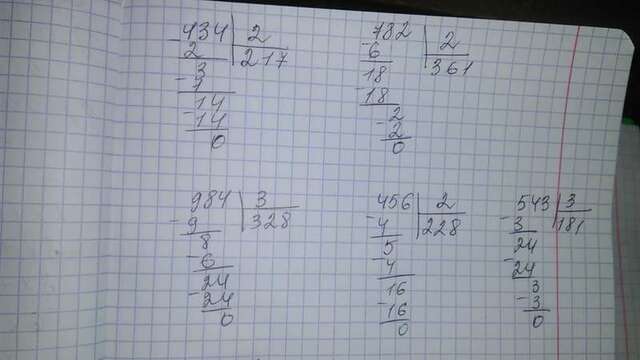 434 2
- 2 217
3
- 1
14
- 14
0
782 2
- 6 361
18
- 18
2
- 2
0
984 3
- 9 328
8
- 6
24
- 24
0
456 2
- 4 228
5
- 4
16
- 16
0
543 3
- 3 181
24
- 24
3
- 3
0